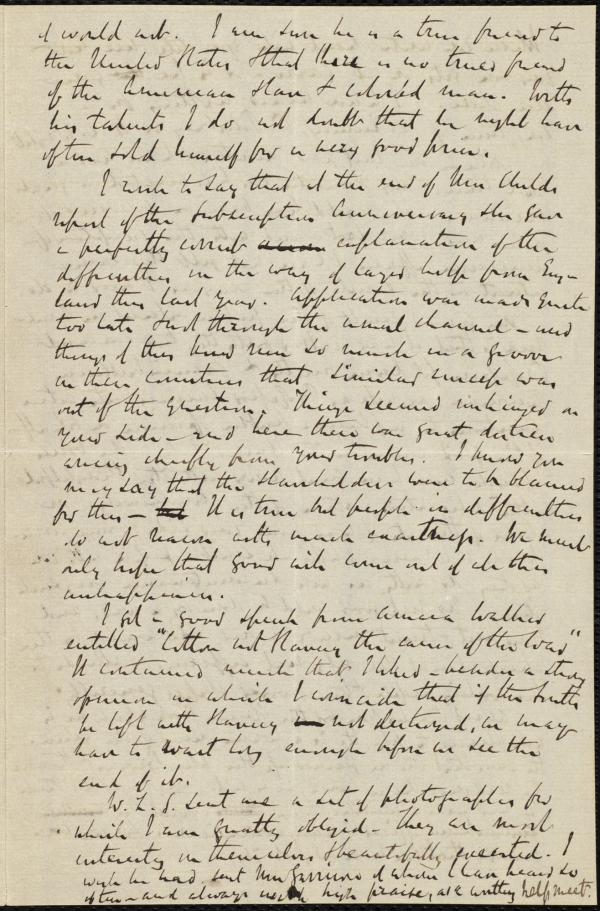 I would not. I am sure he is a true friend to
the United States & that there is no truer friend
of the American Slave & colored man. With
his talents I do not doubt that he might have
often sold himself for a very good price.
I wish to say that at the end of Mrs Childs
report of the Subscription Anniversary she gave
a perfectly correct explanation of the
difficulties in the way of large help from Eng-
land this last year. Application was made quite
too late & not through the usual channel - and
things of this kind run so much in a groove
in these countries that similar success was
out of the question. Things seemed unhinged on
your side - and here there was great distress
arising chiefly from your troubles. I know you
may say that the Slaveholders were to be blamed
for this - but It is true but people in difficulties
do not reason with much exactness. We must
only hope that good will come out of all this
unhappiness.
I got a good speech from Amasa Walker
entitled "Cotton not Slavery the cause of the War"
It contained much that I liked - besides a strong
opinion in which I coincide that if the South
be left with Slavery not destroyed, we may
have to wait long enough before we see the
end of it.
W. L. G. sent me a set of photographs for
which I am greatly obliged - they are most
interesting in themselves & beautifully executed. I
wish he had sent Mrs Garrison of whom I have heard so
often - and always with high praise, as a worthy help meet.